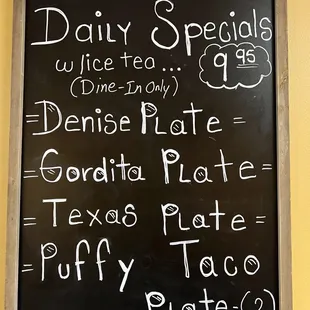 Daily Specials
w/ice tea... 9 95
(Dine-In Only)
=Denise Plate=
=Gordita Plate=
=Texas Plate=
=Puffy Taco
Plate-(2)